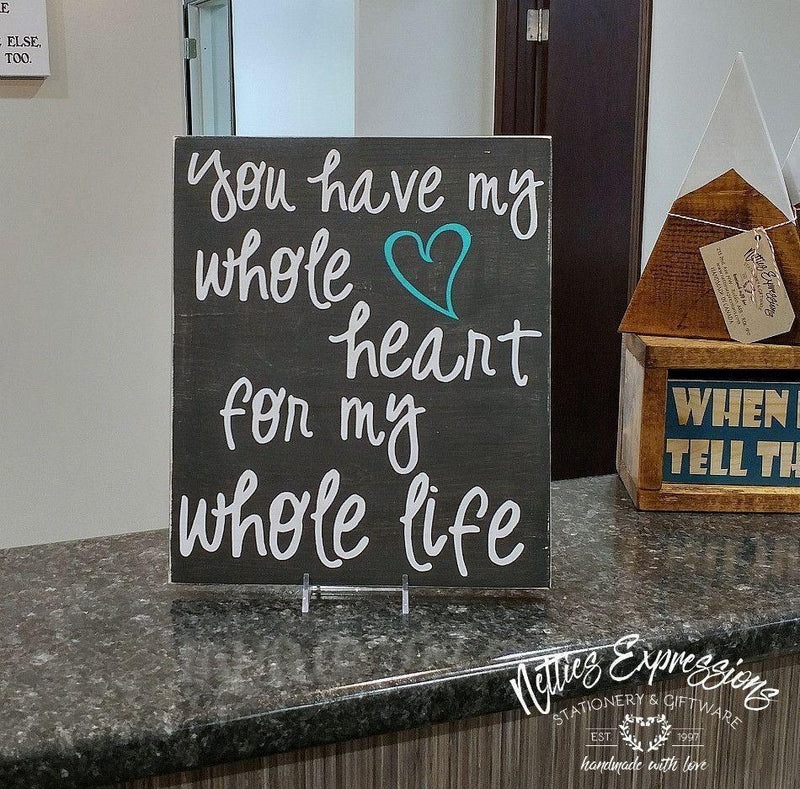 ELSE,
TOO.
you have my
whole
heart
for my
whole life
Netties Expressions
WHEN
TELL TH
Netties Expressions
STATIONERY & GIFTWARE
EST. 1997
handmade with love